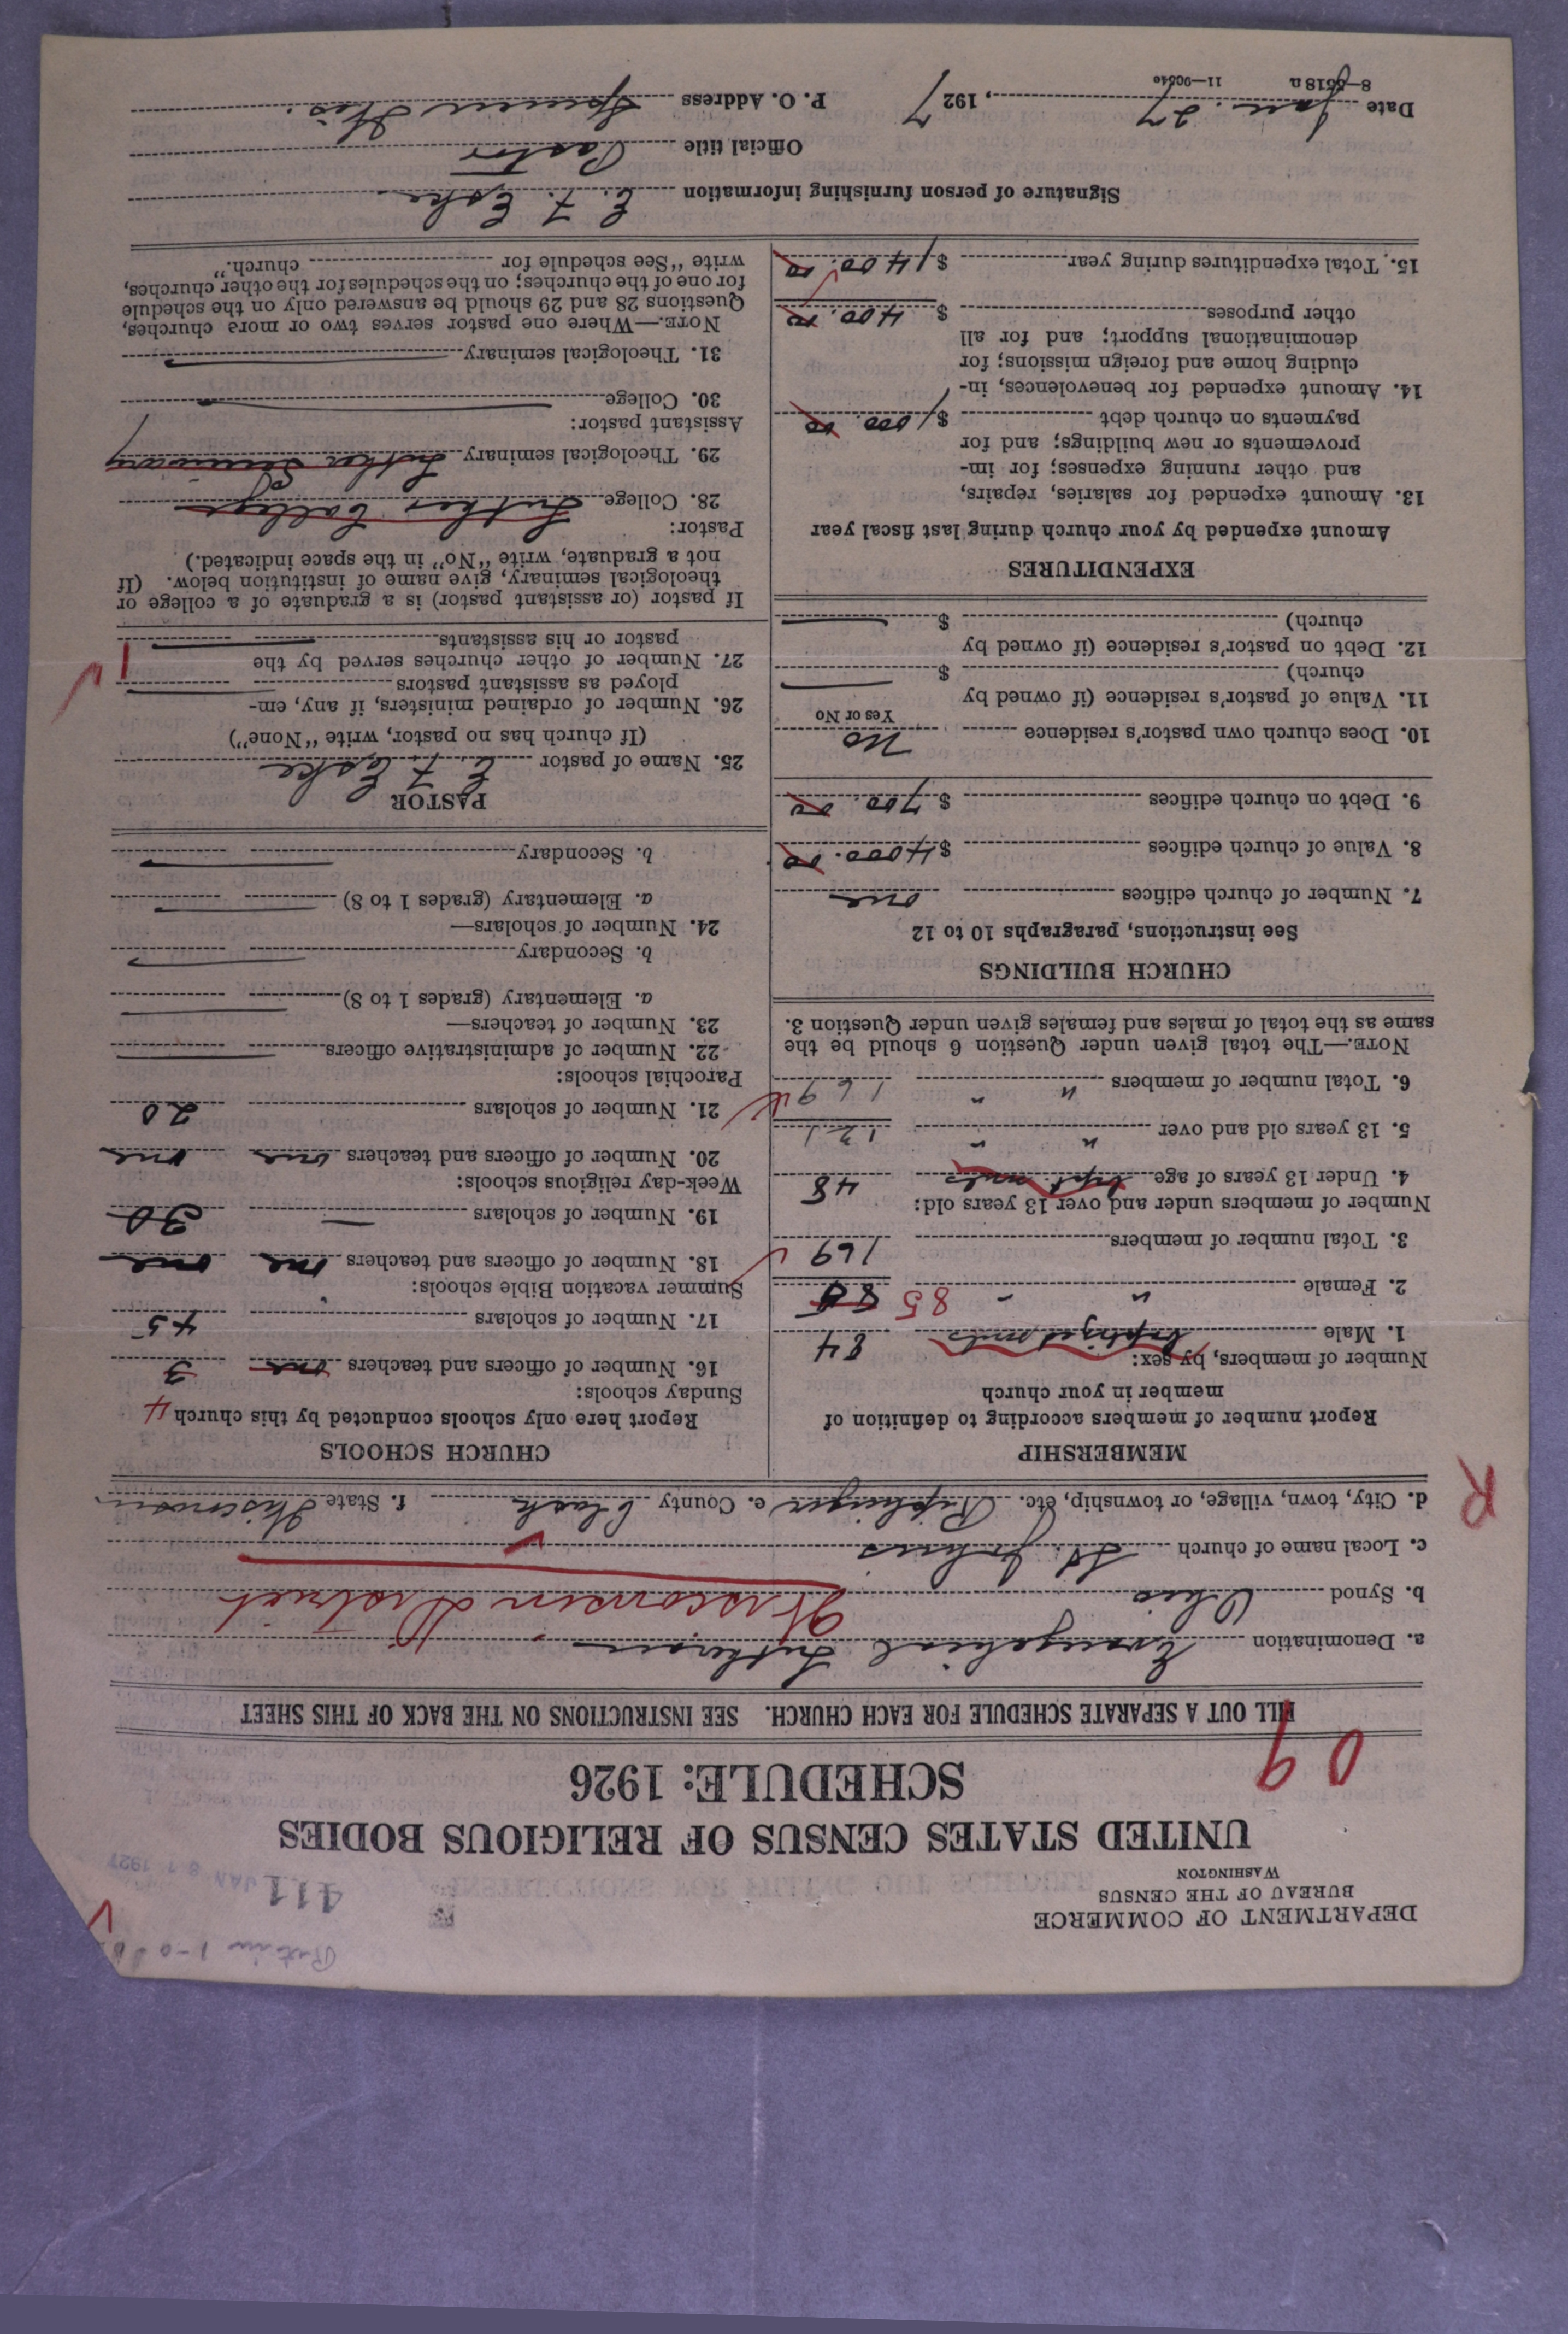 DEPARTMENT OF COMMERCE
BUREAU OF THE CENSUS
WASHINGTON
411
JAN 1927
UNITED STATES CENSUS OF RELIGIOUS BODIES
SCHEDULE: 1926
09
FILL OUT A SEPARATE SCHEDULE FOR EACH CHURCH. SEE INSTRUCTIONS ON THE BACK OF THIS SHEET
a. Denomination Evangelical Lutheran
b. Synod Ohio Wisconsin District
c. Local name of church St. Johns
d. City, town, village, or township, etc. Riplinger e. County Clark f. State Wisconsin
R
MEMBERSHIP
Report number of members according to definition of
member in your church
Number of members, by sex:
1. Male baptized souls 84
2. Female " " 85 85
3. Total number of members 169
Number of members under and over 13 years old:
4. Under 13 years of age bapt. souls 48
5. 13 years old and over " " 121
6. Total number of members " " 169
NOTE.—The total given under Question 6 should be the
same as the total of males and females given under Question 3.
CHURCH BUILDINGS
See instructions, paragraphs 10 to 12
7. Number of church edifices one
8. Value of church edifices $4000.00
9. Debt on church edifices $700.00
10. Does church own pastor's residence No
Yes or No
11. Value of pastor's residence (if owned by
church) $
12. Debt on pastor's residence (if owned by
church) $
EXPENDITURES
Amount expended by your church during last fiscal year
13. Amount expended for salaries, repairs,
and other running expenses; for im-
provements or new buildings; and for
payments on church debt $1000.00
14. Amount expended for benevolences, in-
cluding home and foreign missions; for
denominational support; and for all
other purposes $400.00
15. Total expenditures during year $1400.00
CHURCH SCHOOLS
Report here only schools conducted by this church
Sunday schools: 4
16. Number of officers and teachers one 3
17. Number of scholars 45
Summer vacation Bible schools:
18. Number of officers and teachers one one
19. Number of scholars — 30
Week-day religious schools:
20. Number of officers and teachers one one
21. Number of scholars 20
Parochial schools:
22. Number of administrative officers
23. Number of teachers—
a. Elementary (grades 1 to 8)
b. Secondary
24. Number of scholars—
a. Elementary (grades 1 to 8)
b. Secondary
PASTOR
25. Name of pastor E. F. Eske
(If church has no pastor, write "None")
26. Number of ordained ministers, if any, em-
ployed as assistant pastors
27. Number of other churches served by the
pastor or his assistants 1
If pastor (or assistant pastor) is a graduate of a college or
theological seminary, give name of institution below. (If
not a graduate, write "No" in the space indicated.)
Pastor:
28. College Luther College
29. Theological seminary Luther Seminary
Assistant pastor:
30. College
31. Theological seminary
NOTE.—Where one pastor serves two or more churches,
Questions 28 and 29 should be answered only on the schedule
for one of the churches; on the schedules for the other churches,
write "See schedule for church."
Signature of person furnishing information E. F. Eske
Official title Pastor
Date Jan. 27, 1927 P. O. Address Spencer Wis.
8—5518a 11—9054e